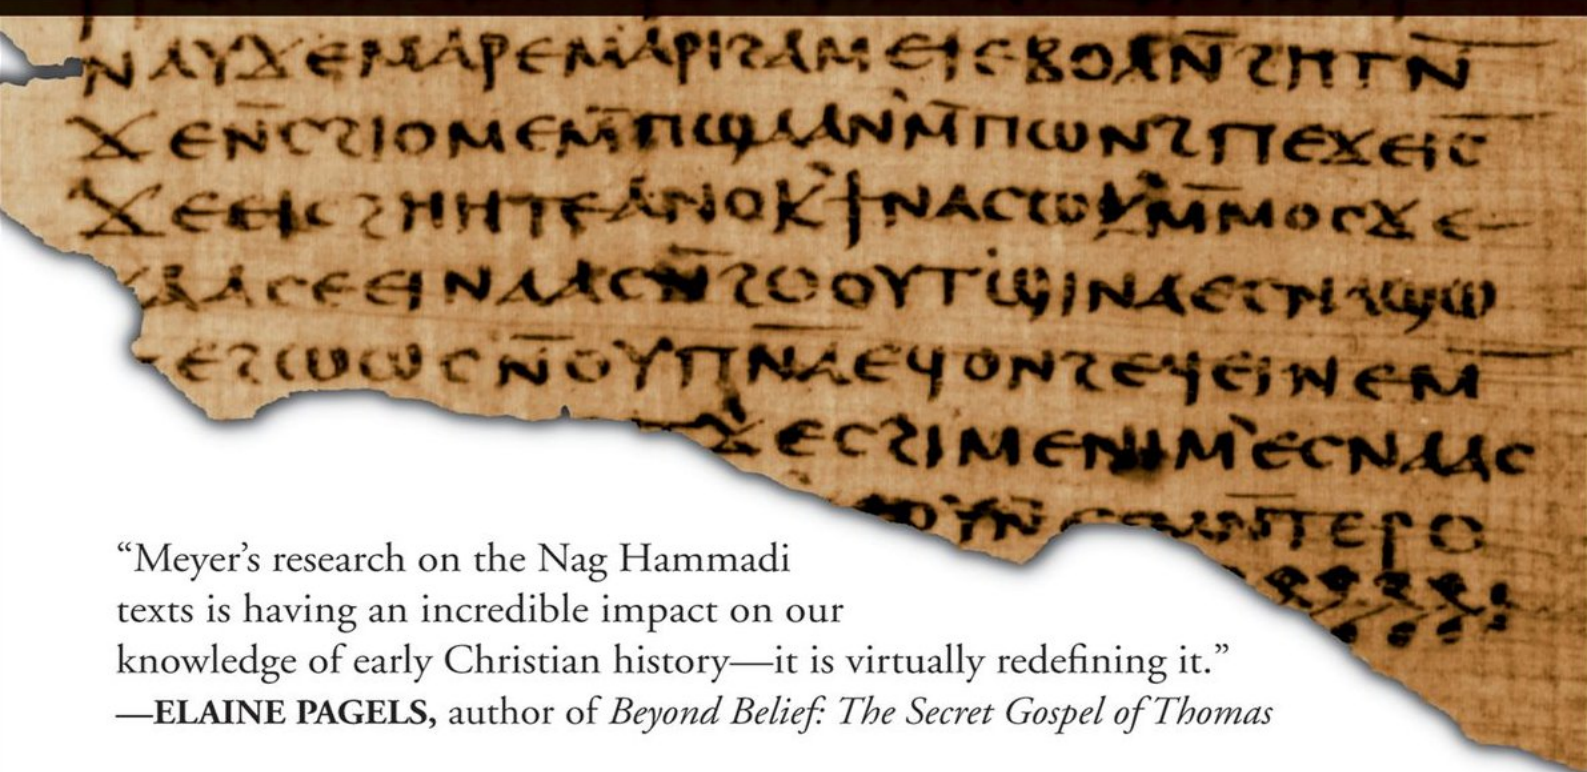 ⲛⲁⲩϫⲉⲙⲁⲣⲉⲙⲁⲣⲓϩⲁⲙⲉⲓⲉⲃⲟⲗⲛ̄ϩⲏⲧⲛ̄
ϫⲉⲛ̄ⲥϩⲓⲟⲙⲉⲙ̄ⲡϣⲁⲁⲛ'ⲙ̄ⲡⲱⲛϩⲡⲉϫⲉⲓ̄ⲥ̄
ϫⲉⲉⲓⲥϩⲏⲏⲧⲉⲁⲛⲟⲕ'ϯⲛⲁⲥⲱⲕ'ⲙ̄ⲙⲟⲥϫⲉ
ⲕⲁⲁⲥⲉⲉⲓⲛⲁⲁⲥⲛ̄ϩⲟⲟⲩⲧ'ϣⲓⲛⲁⲉⲥⲛⲁϣⲱ
ⲉϩⲱⲱⲥⲛ̄ⲟⲩⲡ̄ⲛ̄ⲁ̄ⲉϥⲟⲛϩⲉϥⲉⲓⲛⲉⲙ̄
ϫⲉⲥϩⲓⲙⲉⲛⲓⲙ'ⲉⲥⲛⲁⲁⲥ
ⲟⲩⲛⲉⲧⲙⲛ̄ⲧⲉⲣⲟ
“Meyer’s research on the Nag Hammadi
texts is having an incredible impact on our
knowledge of early Christian history—it is virtually redefining it.”
—ELAINE PAGELS, author of Beyond Belief: The Secret Gospel of Thomas